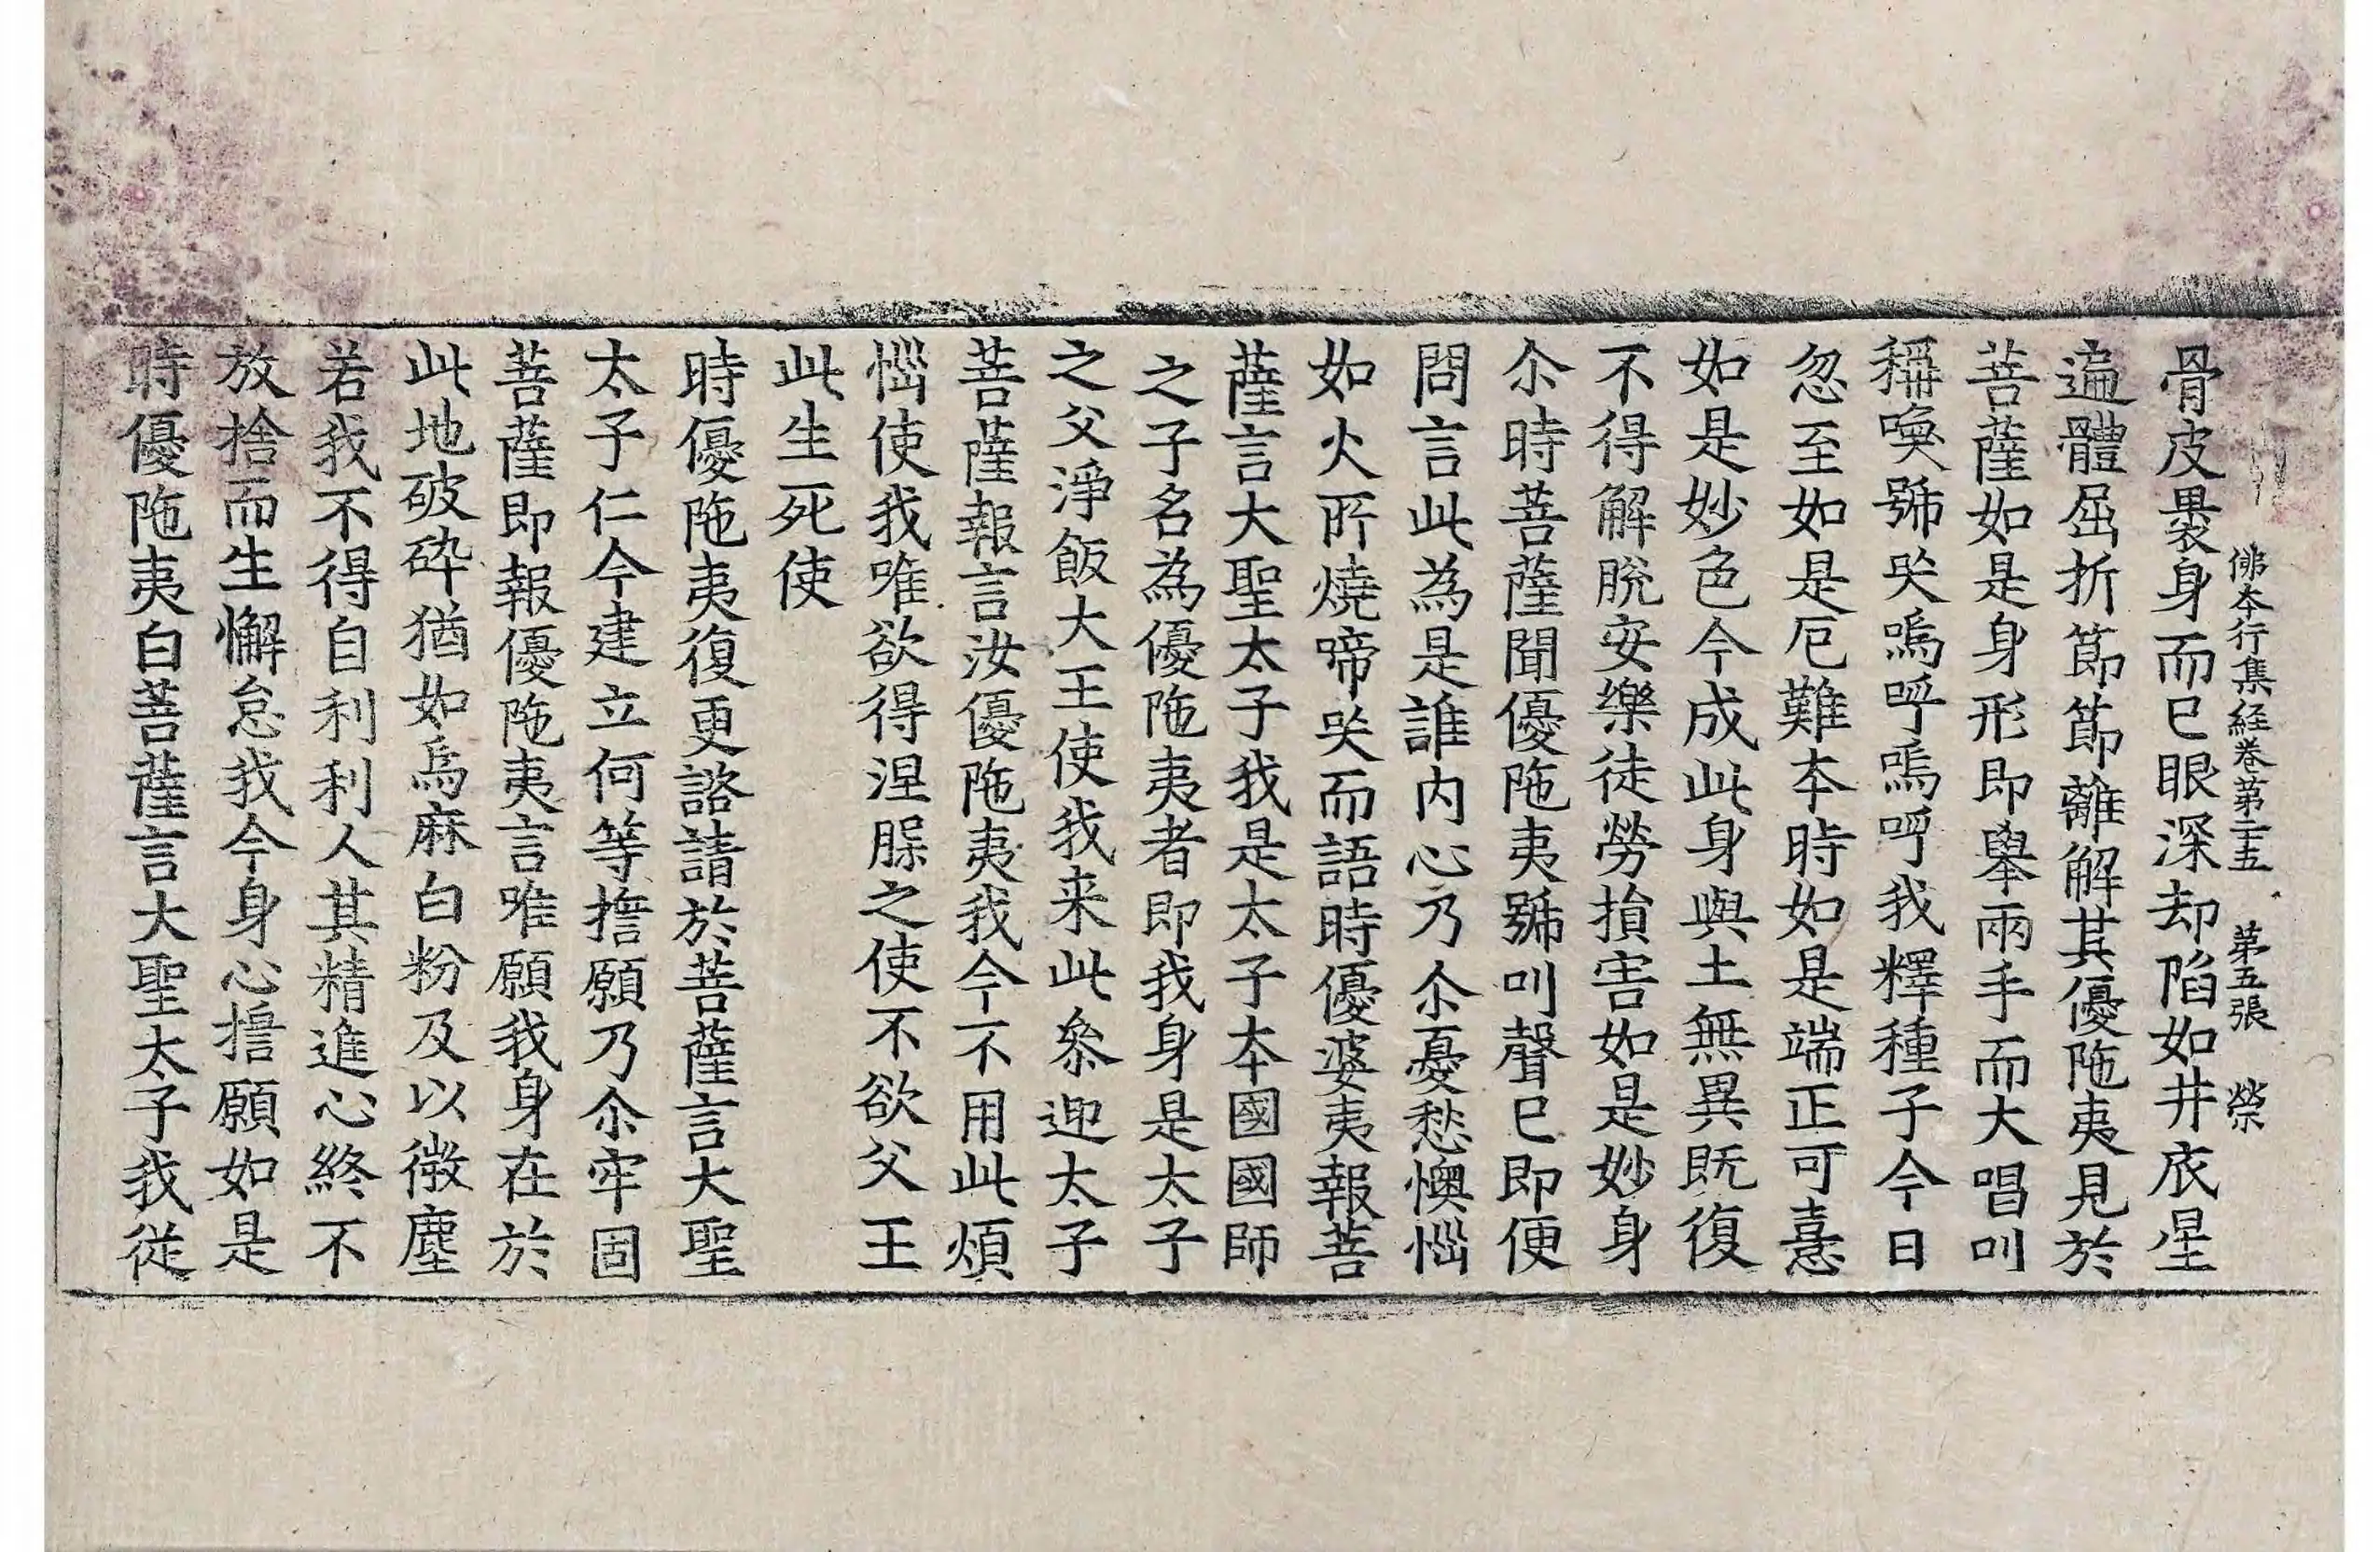 佛本行集経卷第二十五　第五張　榮
骨皮裹身而已眼深却陷如井底星
遍體屈折節節離解其優陁夷見於
菩薩如是身形即舉兩手而大唱叫
稱喚號哭嗚呼嗚呼我釋種子今日
忽至如是厄難本時如是端正可憙
如是妙色今成此身與土無異既復
不得解脫安樂徒勞損害如是妙身
尒時菩薩聞優陁夷號叫聲已即便
問言此為是誰内心乃尒憂愁懊惱
如火所燒啼哭而語時優婆夷報菩
薩言大聖太子我是太子本國國師
之子名為優陁夷者即我身是太子
之父淨飯大王使我来此叅迎太子
菩薩報言汝優陁夷我今不用此煩
惱使我唯欲得涅槃之使不欲父王
此生死使
時優陁夷復更諮請於菩薩言大聖
太子仁今建立何等誓願乃尒牢固
菩薩即報優陁夷言唯願我身在於
此地破碎猶如烏麻白粉及以微塵
若我不得自利利人其精進心終不
放捨而生懈怠我今身心誓願如是
時優陁夷白菩薩言大聖太子我從